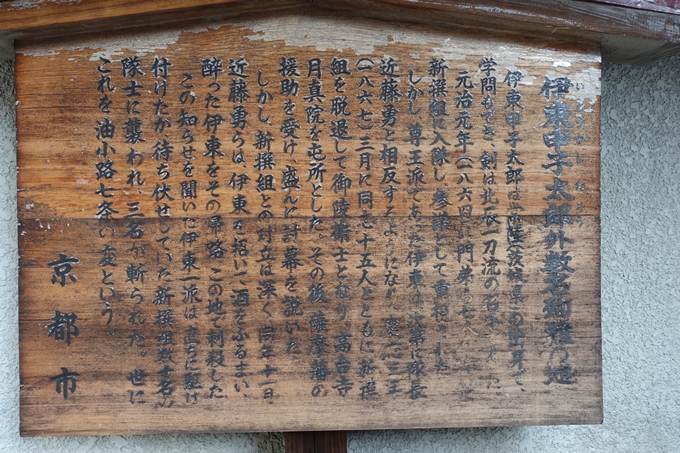 伊東甲子太郎外数名殉難の地
いとうかしたろう
伊東甲子太郎は常陸(茨城県)の出身で、
学問もでき、剣は北辰一刀流の名手であった。
元治元年(一八六四)門弟ら七名
新撰組に入隊し参謀として重視された。
しかし、尊王派であった伊東は次第に隊長
近藤勇と相反するようになり、慶応三年
(一八六七)三月に同志十五人とともに新撰
組を脱退して御陵衛士となり、高台寺
月真院を屯所とした。その後、薩摩藩の
援助を受け、盛んに討幕を説いた。
しかし、新撰組との対立は深く、同年十一月、
近藤勇らは、伊東を招いて酒をふるまい、
酔った伊東をその帰路、この地で刺殺した。
この知らせを聞いた伊東一派は直ちに駆け
付けたが、待ち伏せしていた新撰組数十名の
隊士に襲われ、三名が斬られた。世に
これを油小路七条の変という。
京都市